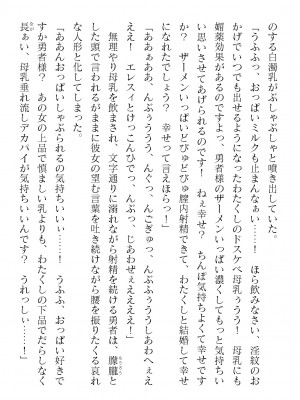 のする白濁乳がぷしゃぷしゃと噴き出していた。
「うふふっ、おっぱいミルク止まんなぁい……！　ほら飲みなさい、淫紋のお
かげでいつでも出せるようになったわたくしのドスケベ母乳ぅう！　母乳にも
媚薬効果があるのですよっ、勇者様のザーメンいっぱい濃くしてもっと気持ち
いい思いさせてあげられるのです！　ねぇ幸せ？　ちんぽ気持ちよくて幸せです
わよね？　ザーメンいっぱいどぴゅどぴゅ膣内射精できて、わたくしと結婚して幸せ
になれたでしょう？　幸せって言えほらっ！」
「ああぁああ、んぶぅううう、んっ、んごぎゅっ、んぶふぅううしあわへぇえ
えぇス！　エレスィとけっこんひでっ、じあわぜぇええええ！」
　無理やり母乳を飲まされ、文字通りに溺れながら射精を続ける勇者は、朦朧と
した頭で言われるがままに彼女の望む言葉を吐き続けながら腰を振りたくる哀れ
な人形と化してしまった。
「ああんおっぱいしゃぶられるの気持ちいぃ……！　うふふ、おっぱい好きで
すか勇者様？　あの女の上品で慎ましい乳よりも、わたくしの下品でだらしなく
長ぁい、母乳垂れ流しデカパイが気持ちいいんです？　うれっしぃ……！」